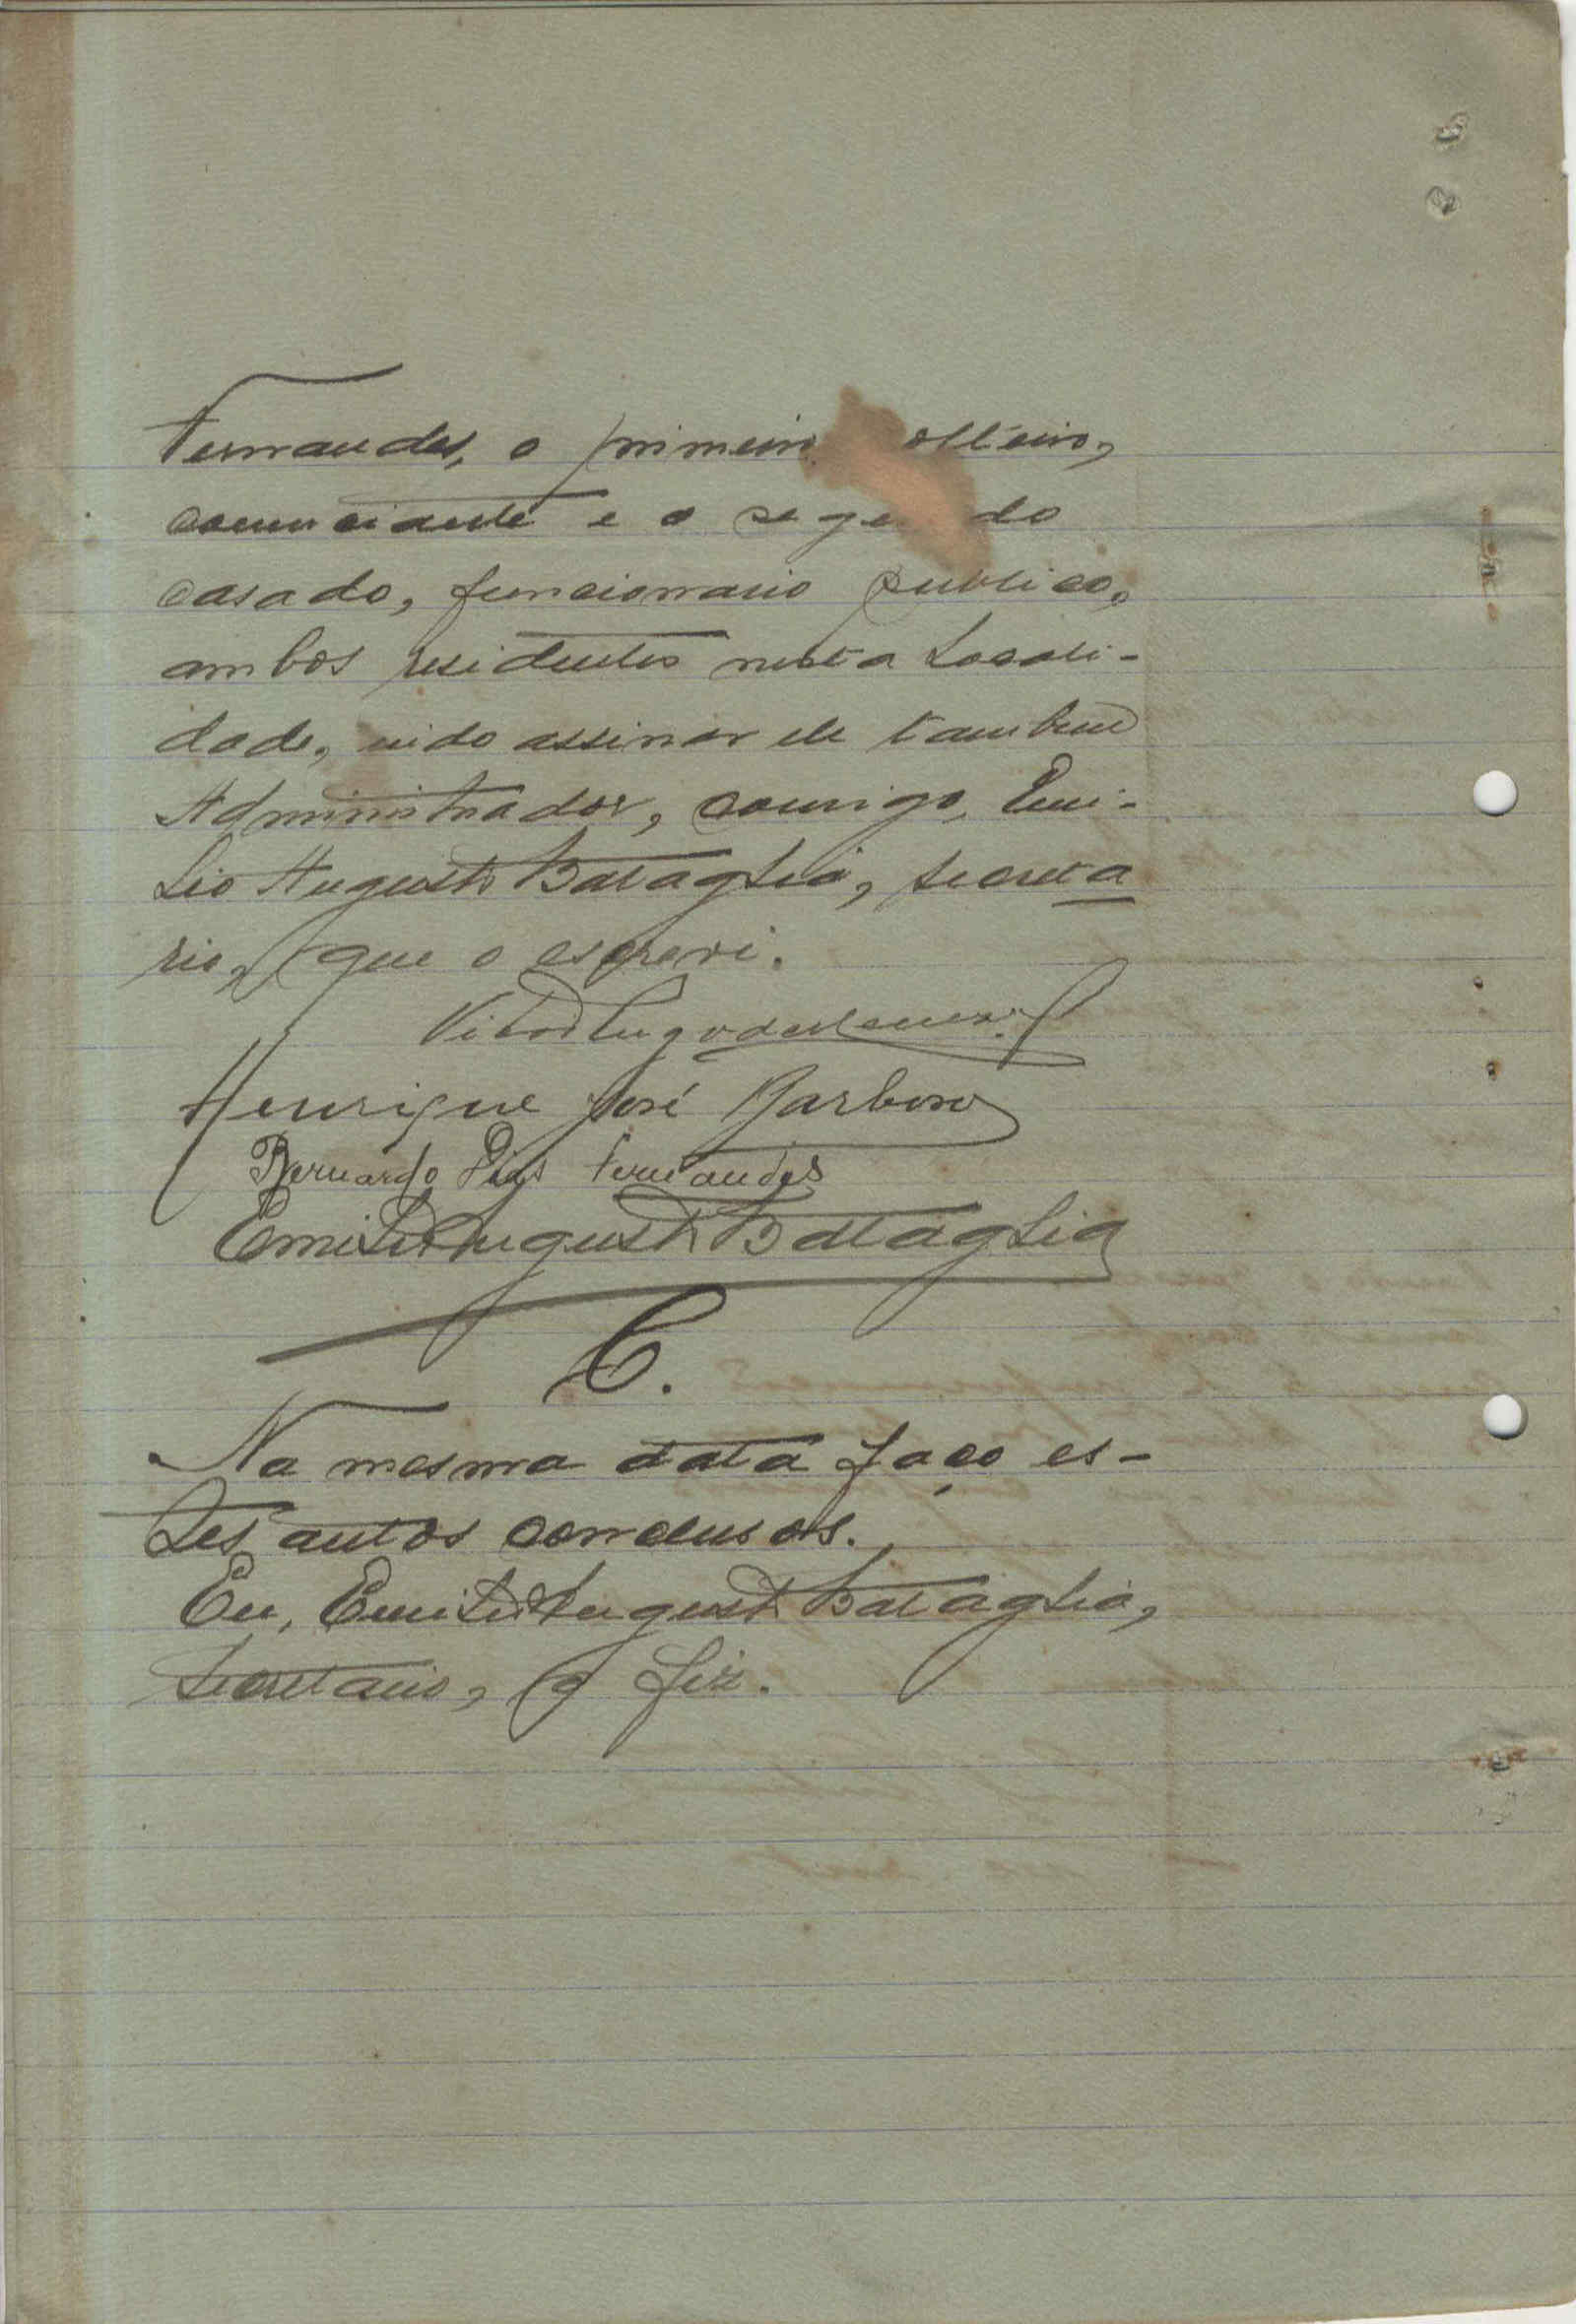 Fernandes, o primeiro solteiro,
comerciante e o segundo
casado, funcionario publico,
ambos residentes nesta Locali-
dade, indo assinar ele tambem
Administrador, comigo, Emi-
lio Augusto Bataglia, secreta
rio, que o escrevi.
Henrique José Barbosa
Bernardo Dias Fernandes
Emilio Augusto Bataglia
C.
Na mesma data faço es-
tes autos conclusos.
Eu, Emilio Augusto Bataglia,
Secretario, q fiz.